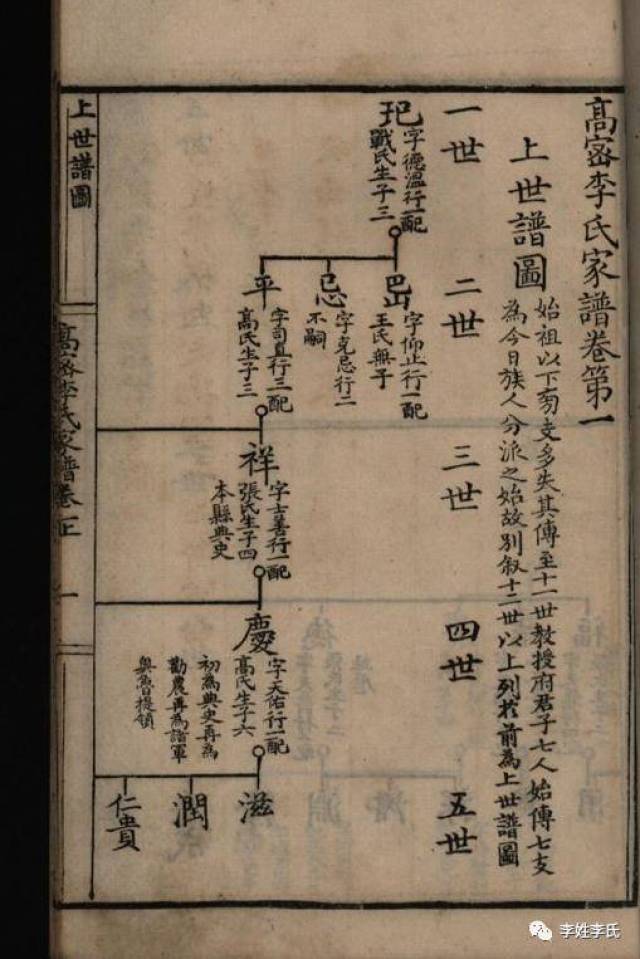 高宻李氏家譜卷第一
上世譜圖
始祖以下旁支多失其傳至十一世教授府君子七人始傳七支
為今日族人分派之始故別叙十二世以上列於前為上世譜圖
一世
二世
三世
四世
五世
玘
字德溫行一配
戰氏生子三
岊
字仰止行一配
王氏無子
忌
字克忌行二
不嗣
平
字司直行三配
高氏生子三
祥
字士善行一配
張氏生子四
本縣典史
慶
字天佑行一配
高氏生子六
初為典史再為
勸農再為諳軍
奧魯提領
滋
潤
仁貴
上世譜圖
高宻李氏家譜卷
一
李姓李氏